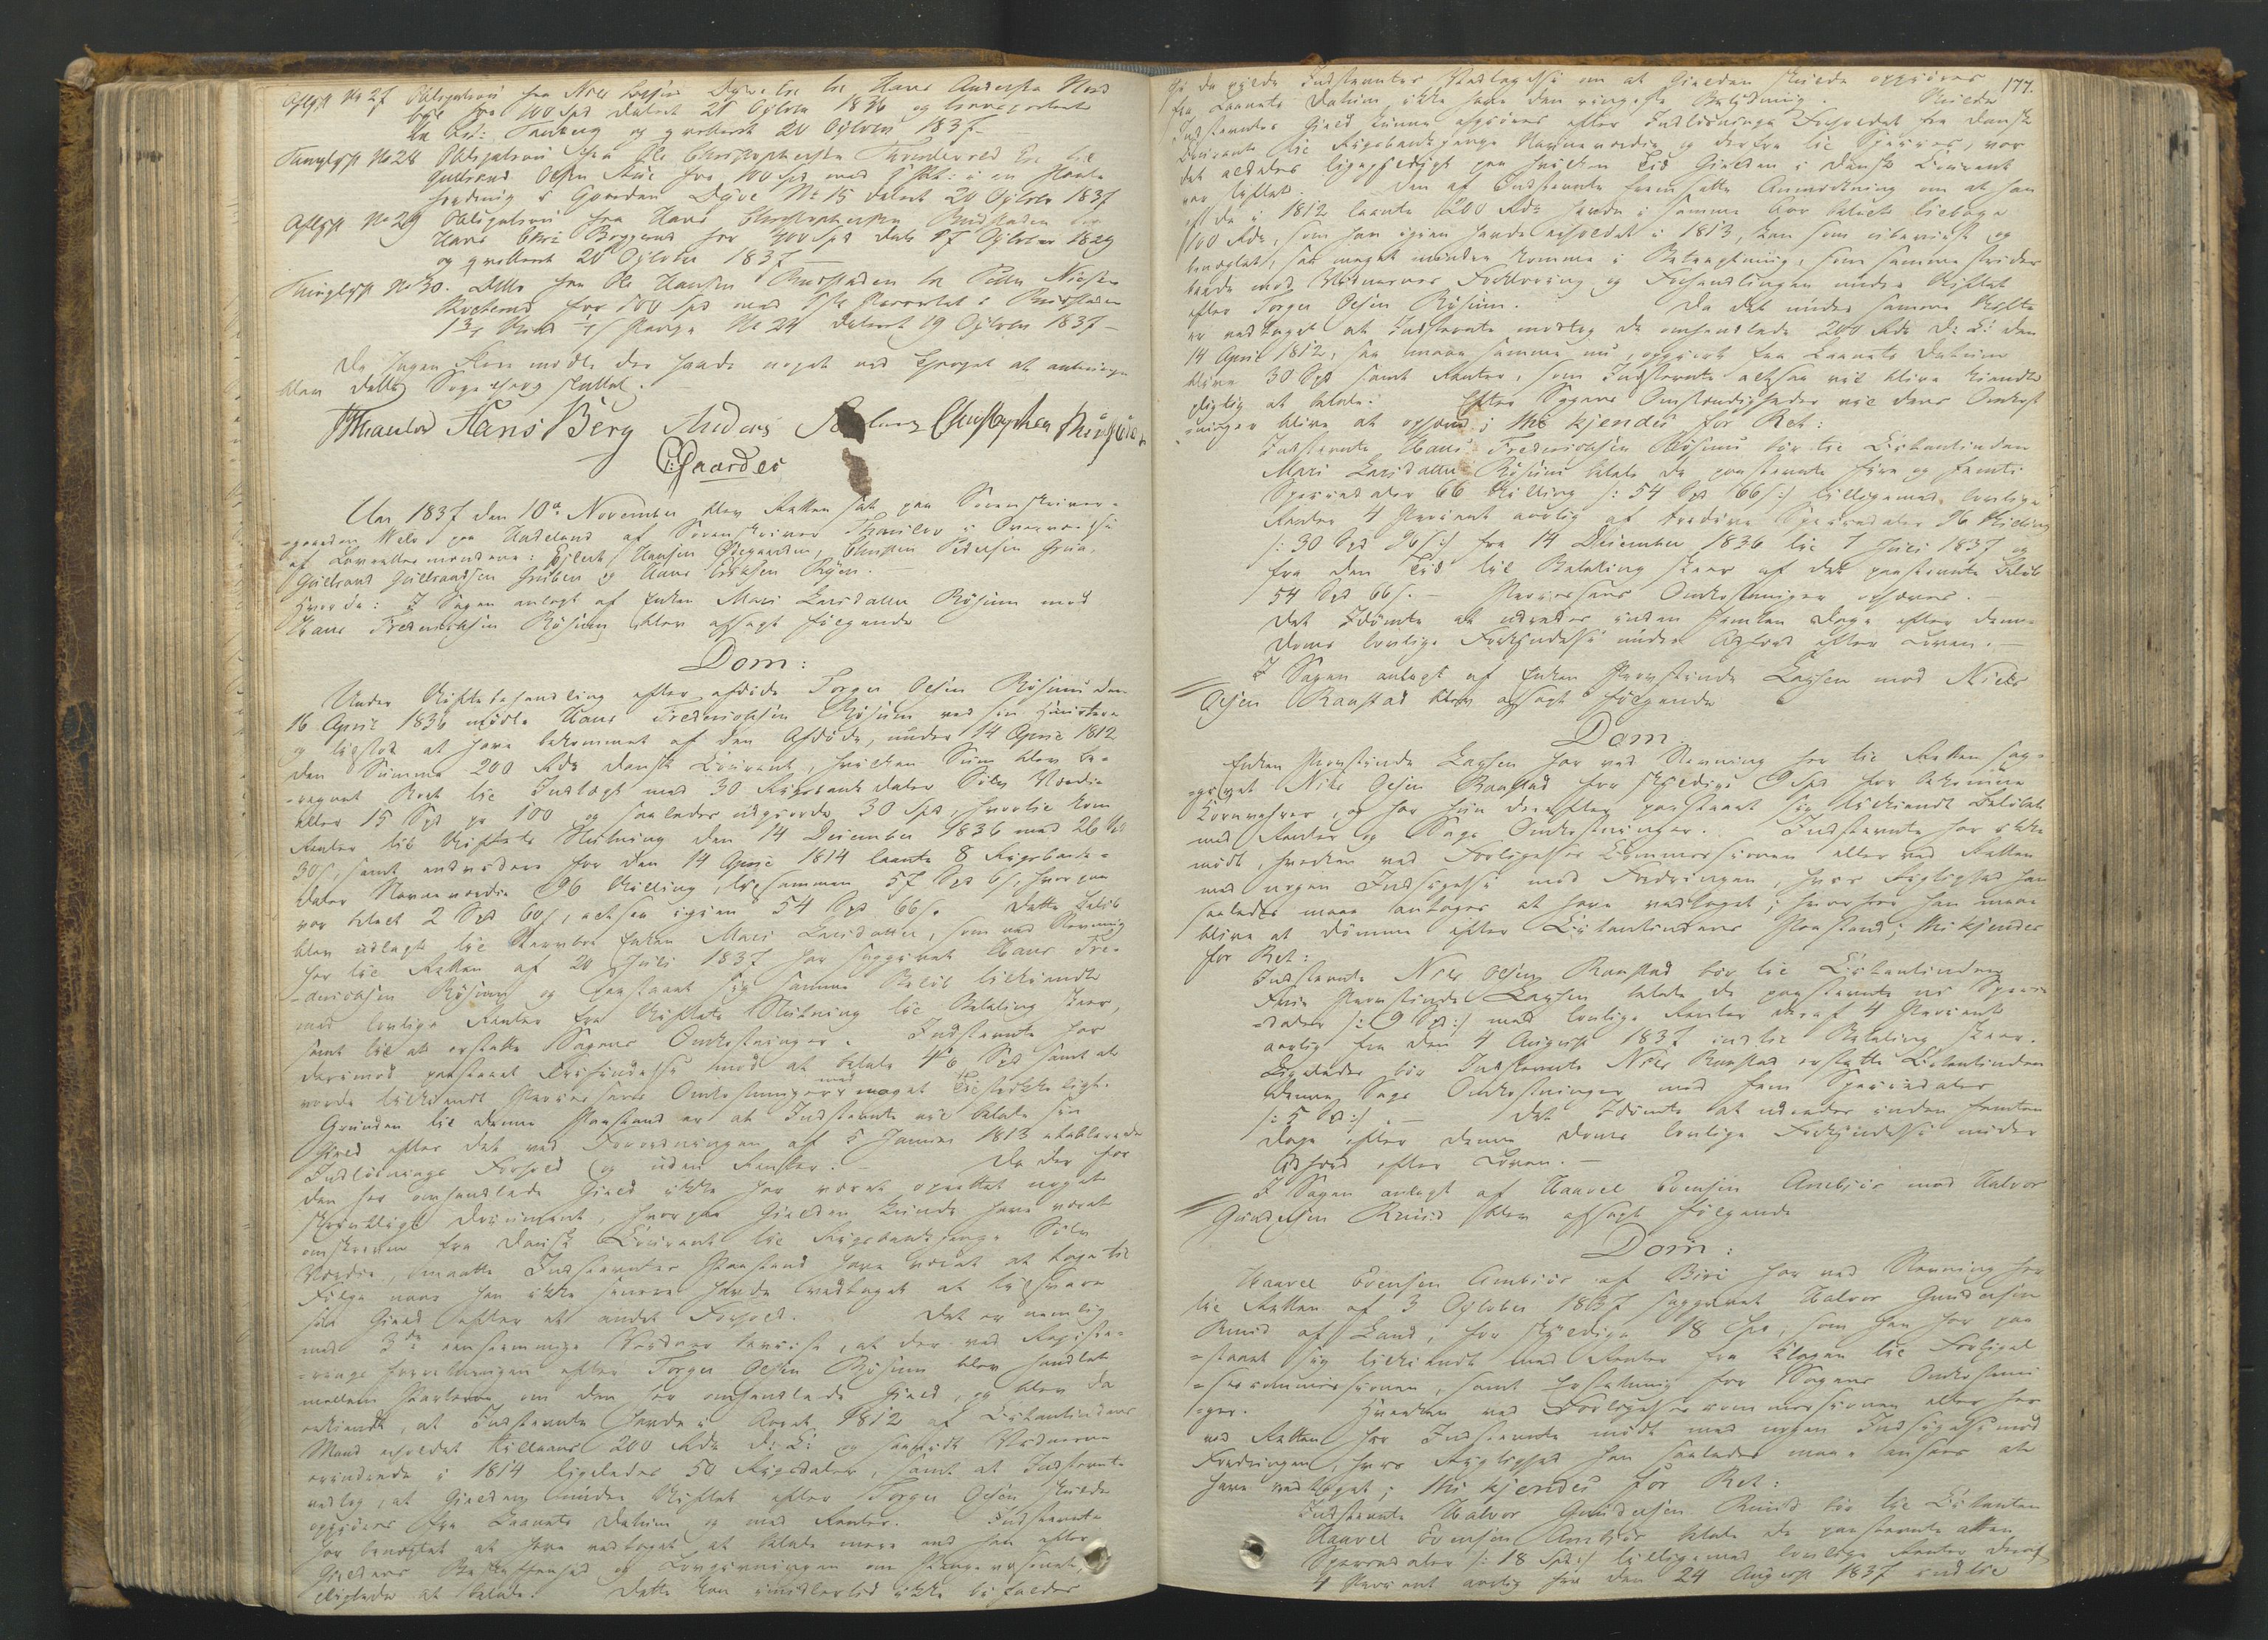 Aflyst No 27 Obligation fra Niels Larsen Dyve til Hans Andersen Nord
bye for 100 Spd dateret 25 October 1836 og transporteret
og qvitteret 20 October 1837
Thinglyst No 28 Obligation fra Ole Christophersen til
Gulbrand Olsen for 100 Spd mod 1ste Pant
i Gaarden Dyve No 15 dateret 20 October 1837
Aflyst No 29 Obligation fra Hans Christophersen Rudstaden til
Hans for 400 Spd dat: 17 October 1829
og qvitteret 20 October 1837
Thinglyst No 30. Ditto fra Ole Hansen Rudstaden til Peder Nielsen
for 100 Spd mod 1ste Prioritet i Rudstaden
No 24 dateret 19 October 1837 –
Da Ingen flere mødte der havde noget ved Thinget at anbringe
blev dette Sagething sluttet.
Thaulow Hans Berg Anders Christophen
Aar 1837 den 10de November blev Retten sat paa Sorenskriver-
gaarden paa Hadeland af Sorenskriver Thaulow i Overværelse
af Laurettesmændene: Hansen Ødegaarden, Christen Pedersen Grua,
Gulbrand Gulbrandsen Gruben og Hans Eriksen Ryen.
Hvorda: I Sagen anlagt af Enken Mari Larsdatter Røsum mod
Hans Fredriksen Røsum blev afsagt følgende
Dom:
Under Skiftebehandling efter afdøde Torger Olsen Røsum den
16 April 1836 mødte Hans Fredriksen Røsum ved sin
og tilstod at have bekommet af den Afdøde, under 14 April 1812
den Summa 200 Rdr dansk Courant, hvilken Sum blev be-
regnet til Indløst med 30 Rigsbankdaler Sølv Værdie
eller 15 Spd pr 100 og saaledes udgiorde 30 Spd, hvortil kom
Renter til Skiftets Slutning den 14 December 1836 med 26 Spd
30 s, samt endvidere for den 14 April 1814 laante 8 Rigsbank-
daler Navneværdie 96 Skilling, tilsammen 57 Spd 6 s, hvorpaa
var betalt 2 Spd 60 s, altsaa igien 54 Spd 66 s. Dette Beløb
blev udlagt til Stervboe Enken Mari Larsdatter, som ved Stevning
her til Retten af 20 Juli 1837 har sagsøgt Hans Fre-
driksen Røsum og paastaaet sig samme Beløb tilkiendt
med lovlige Renter fra Skiftets Slutning til Betaling skeer,
samt til at erstatte Sagens Omkostninger. Indstevnte har
derimod paastaaet Frifindelse mod at betale Spd samt at
vorde tilkiendt Processens Omkostninger med noget Tilstrækkeligt.
Grunden til denne Paastand er at Indstevnte vil betale sin
Gield efter det ved Forordningen af 5 Januar 1813 etablerede
Indløsnings Forhold og uden Renter. – Da der for
den her omhandlede Gield ikke har været oprettet noget
skriftligt Document, hvorpaa Gielden kunde have været
omskreven fra dansk Courant til Rigsbankpenge Sølv
Værdie, maatte Indstevntes Paastand have været at tage til
Følge naar han ikke senere havde vedtaget at tilsvare
sin Gield efter et andet Forhold. Det er nemlig
med 3de eenstemmige Vidner beviist, at der ved Registe-
rings Forretningen efter Torger Olsen Røsum blev handlet
mellem Parterne om den her omhandlede Gield, og blev da
erkiendt, at Indstevnte havde i Aaret 1812 af Citantindens
Mand erholdet tillaans 200 Rdr D: C: og saavidt Vidnerne
erindrede i 1814 ligeledes 50 Rigsdaler, samt at Indstevnte
vedtog, at Gielden under Skiftet efter Torger Olsen skulde
opgiøres fra Laanets Datum og med Renter. Indstevnte
har benægtet at have vedtaget at betale mere end han efter
Gieldens Beskaffenhed og Lovgivningen om Pengevæsenet
pligtede at betale. Dette kan imidlertid ikke bifaldes
177.
thi da gielde Indstevntes Vedtagelse om at Gielden skulde opgiøres
fra Laanets Datum, ikke have den ringeste Betydning. Skulde
Indstevntes Gield kunne opgiøres efter Indløsnings Forholdet fra dansk
Courant til Rigsbankpenge Navneværdie og derfra til Species, var
det aldeles ligegyldigt paa hvilken Tid Gielden i dansk Courant
var stiftet. Den af Indstevnte fremsatte Anmærkning om at han
da i 1812 laante 200 Rdr havde i samme Aar betalt tilbage
100 Rdr, som han igien havde erholdet i 1813, kan som ubeviist og
benægtet, saa meget mindre komme i Betragtning, som samme strider
baade mod Vidnernes Forklaring og Forhandlingen under Skiftet
efter Torger Olsen Røsum. Da det under samme Skifte
er vedtaget at Indstevnte modtog de omhandlede 200 Rdr D: C: den
14 April 1812, saa maae samme nu, opgiort fra Laanets Datum
blive 30 Spd samt Renter, som Indstevnte altsaa vil blive kiendt
pligtig at betale. Efter Sagens Omstændigheder vil dens Omkost
ninger blive at ophæve; thi kjendes for Ret:
Indstevnte Hans Fredriksen Røsum bør til Citantinden
Mari Larsdatter Røsum betale de paastevnte fire og femti
Speciedaler 66 Skilling /: 54 Spd 66 s :/ tilligemed lovlige
Renter 4 Procent aarlig af tredive Speciedaler 96 Skilling
/: 30 Spd 96 s :/ fra 14 December 1836 til 7 Juli 1837 og
fra den Tid til Betaling skeer af det paastevnte Beløb
54 Spd 66 s. – Processens Omkostninger ophæves.
Det Idømte at udredes inden femten Dage efter denne
Doms lovlige Forkyndelse under Adfærd efter Loven. –
I Sagen anlagt af Enken Provstinde Laysen mod Niels
Olsen Raastad blev afsagt følgende
Dom.
Enken Provstinde Laysen har ved Stevning her til Retten sag-
søgt Niels Olsen Raastad for skyldige 9 Spd for bekomne
Kornvahrer, og har hun derefter paastaaet sig tilkiendt Beløbet
med Renter og Sags Omkostninger. Indstevnte har ikke
mødt, hverken ved Forligelses Commissionen eller ved Retten
med nogen Indsigelse mod Fordringen, hvis Rigtighed han
saaledes maae antages at have vedtaget; hvorfor han maae
blive at dømme efter Citantindens Paastand; thi kjendes
for Ret:
Indstevnte Niels Olsen Raastad bør til Citantinden
Enke Provstinde Laysen betale de paastevnte ni Specie-
daler /: 9 Spd :/ med lovlige Renter deraf 4 Procent
aarlig fra den 4 August 1837 indtil Betaling skeer.
Ligeledes bør Indstevnte Niels Raastad erstatte Citantinden
denne Sags Omkostninger med fem Speciedaler
/: 5 Spd :/. – Det Idømte at udredes inden femten
Dage efter denne Doms lovlige Forkyndelse under
Adfærd efter Loven. –
I Sagen anlagt af Haavel Evensen Ambiør mod Halvor
Gundersen Ruud blev afsagt følgende
Dom:
Haavel Evensen Ambiør af Biri har ved Stevning her
til Retten af 3 October 1837 sagsøgt Halvor Gundersen
Ruud af Land, for skyldige 18 Spd, som han har paa
staaet sig tilkiendt med Renter fra Klagen til Forligel
ses commissionen, samt Erstatning for Sagens Omkostnin
ger. Hverken ved Forligelsescommissionen eller her
ved Retten har Indstevnte mødt med nogen Indsigelse mod
Fordringen, hvis Rigtighed han saaledes maae ansees at
have vedtaget; thi kjendes for Ret:
Indstevnte Halvor Gundersen Ruud bør til Citanten
Haavel Evensen Ambiør betale de paastevnte atten
Speciedaler /: 18 Spd :/ tilligemed lovlige Renter deraf
4 Procent aarlig fra den 24 August 1837 indtil